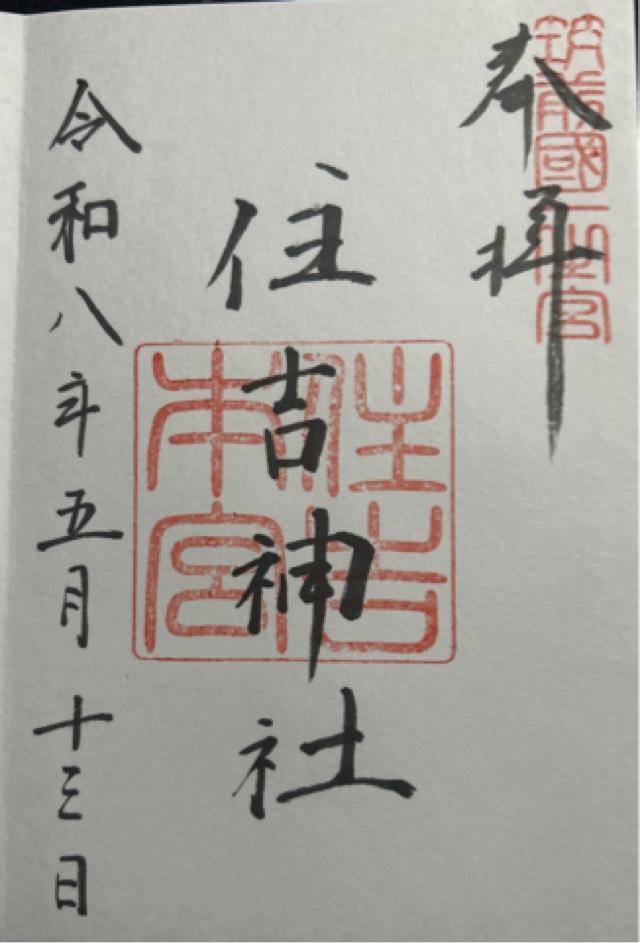 奉拝
筑前國一宮
住吉神社
住吉本宮
令和八年五月十三日